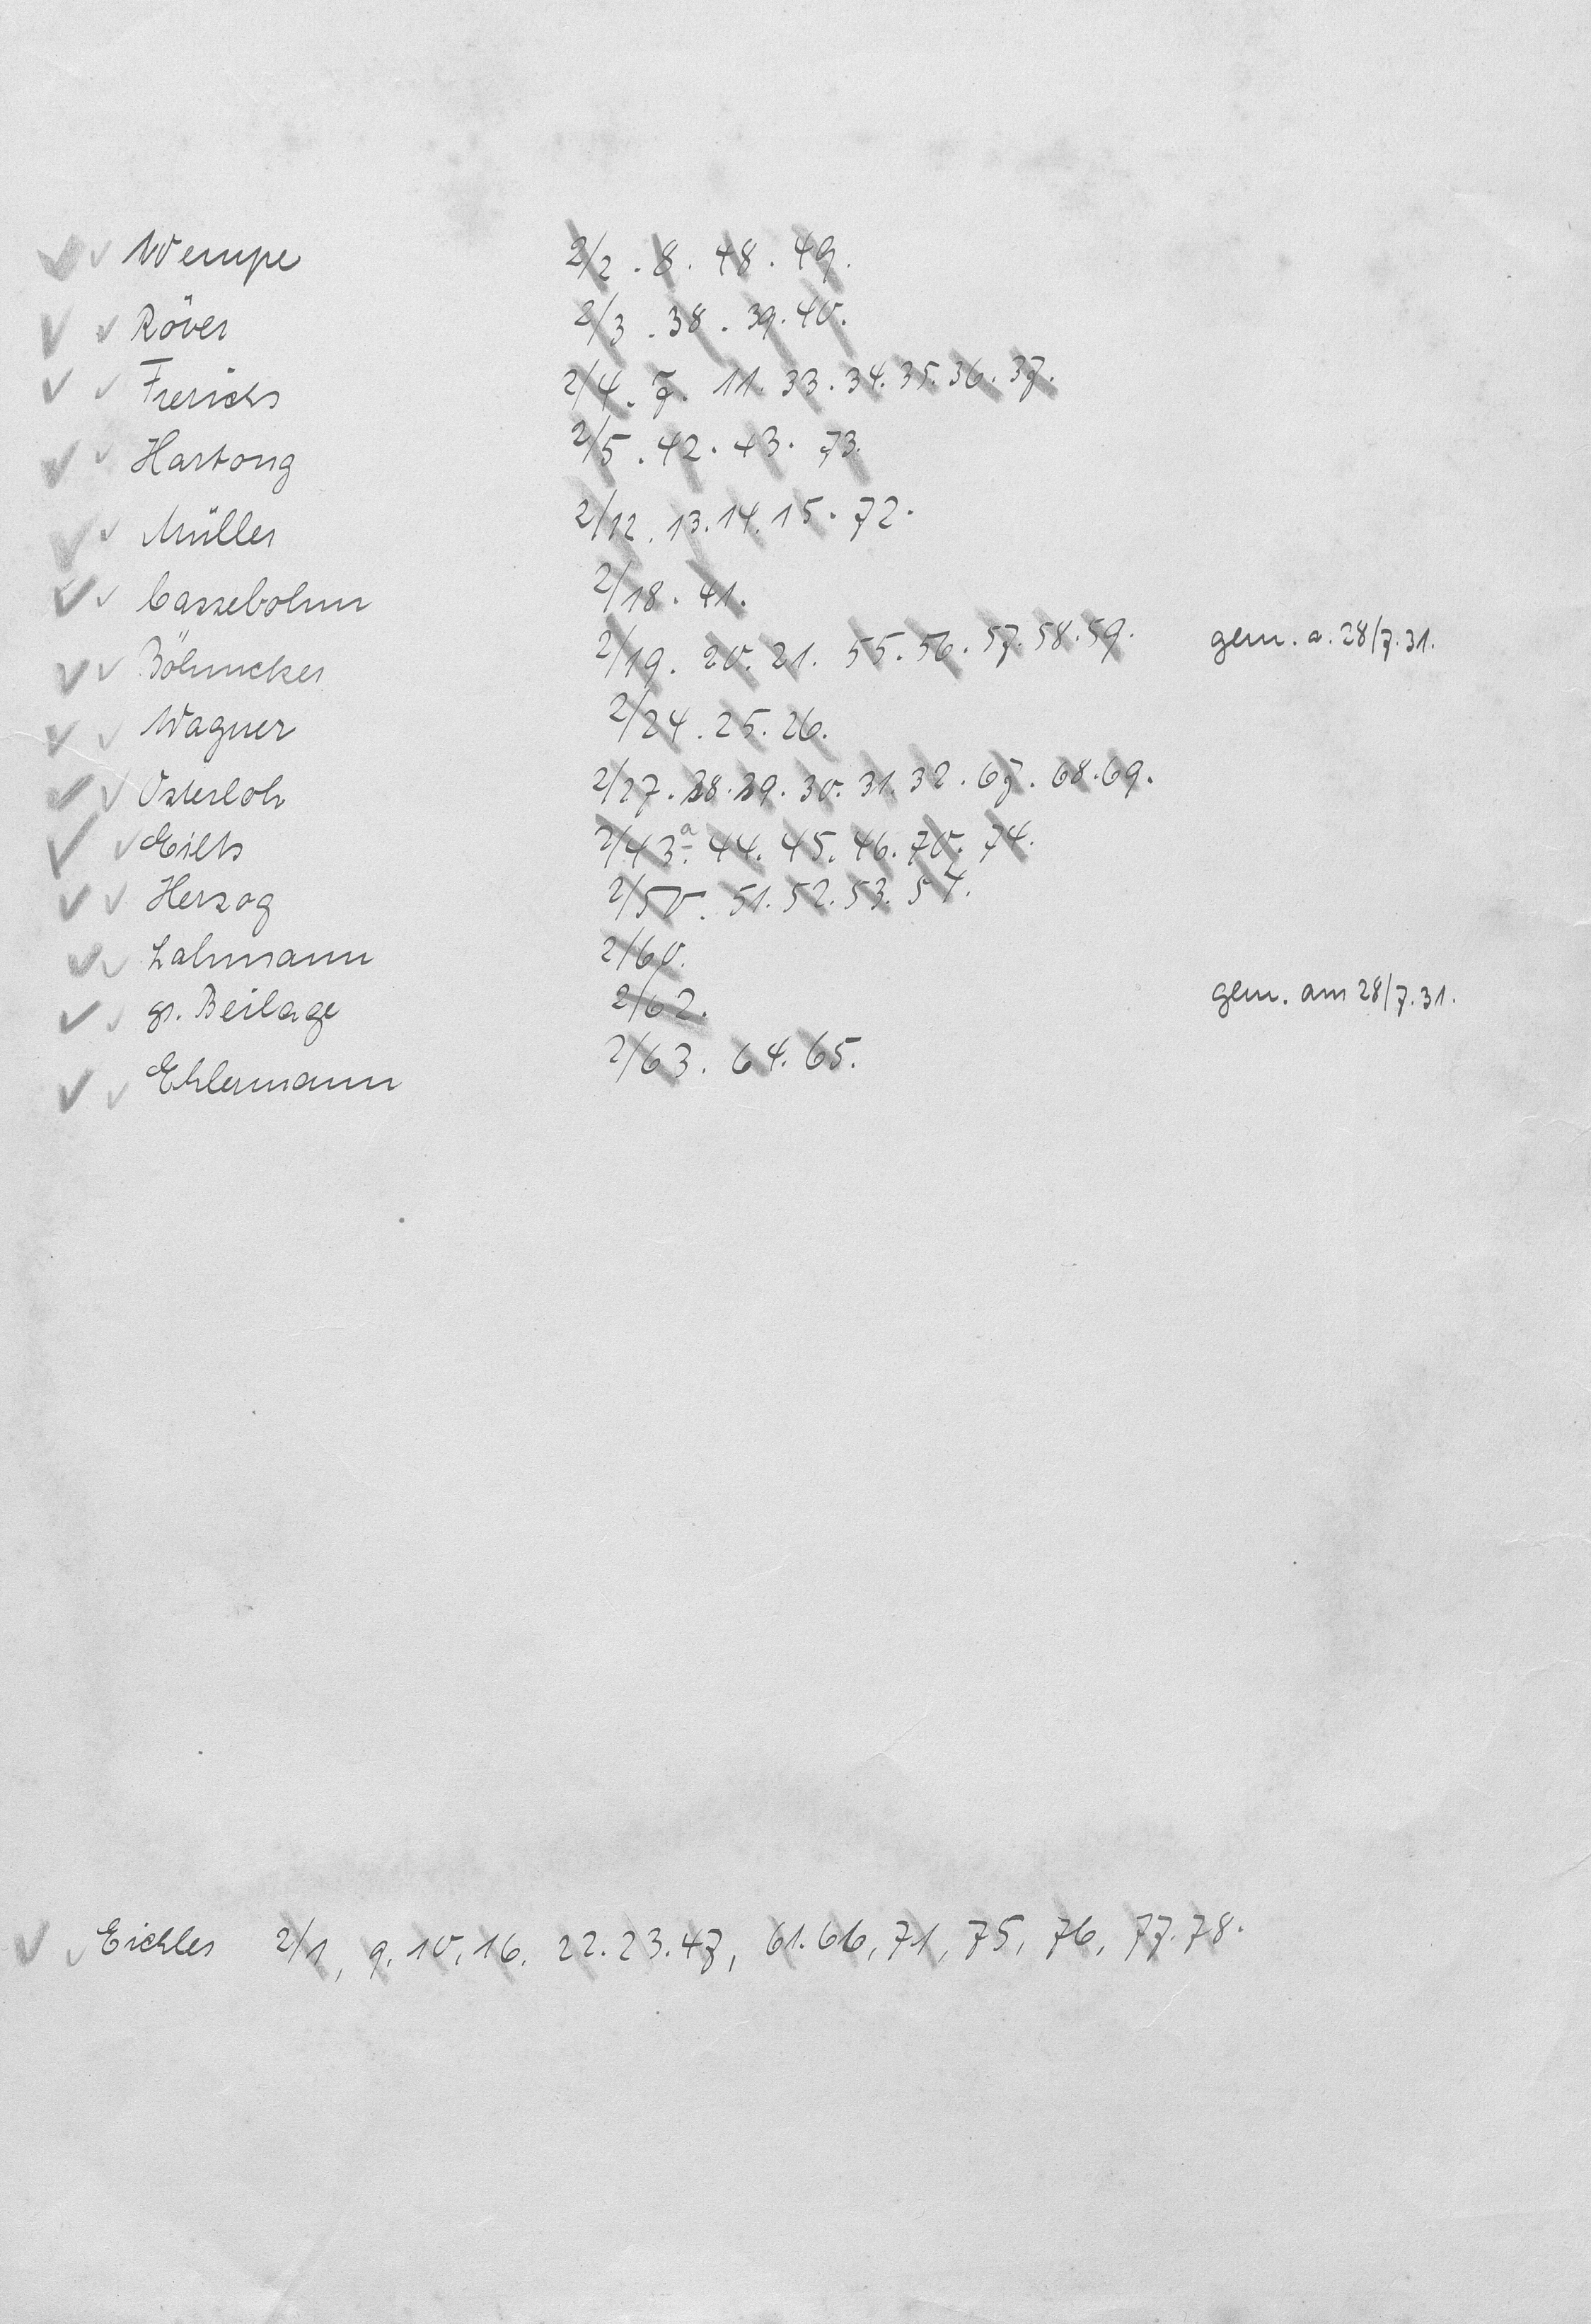 ✓ ✓ Wempe 2/2 . 8 . 48 . 49.
✓ ✓ Röver 2/3 . 38 . 39. 40.
✓ ✓ Frerichs 2/4 . 7. 11. 33. 34. 35. 36. 37.
✓ ✓ Hartong 2/5 . 42 . 43 . 73.
✓ ✓ Müller 2/12 . 13. 14. 15. 72.
✓ ✓ Cassebohm 2/18 . 41.
✓ ✓ Böhmcker 2/19. 20. 21. 55. 56. 57. 58. 59. gem. a. 28/7. 31.
✓ ✓ Wagner 2/24 . 25. 26.
✓ ✓ Osterloh 2/27. 28. 29. 30. 31. 32. 67. 68. 69.
✓ ✓ Eilts 2/43ª. 44. 45. 46. 70. 74.
✓ ✓ Herzog 2/50. 51. 52. 53. 54.
✓ ✓ Lahmann 2/60.
✓ ✓ gr. Beilage 2/62. gem. am 28/7. 31.
✓ ✓ Ehlermann 2/63. 64. 65.
✓ ✓ Eichler 2/1, 9. 10, 16. 22. 23. 47, 61. 66, 71, 75, 76, 77. 78.